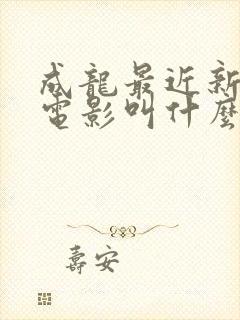 成龍最近新
電影叫什麼
壽安